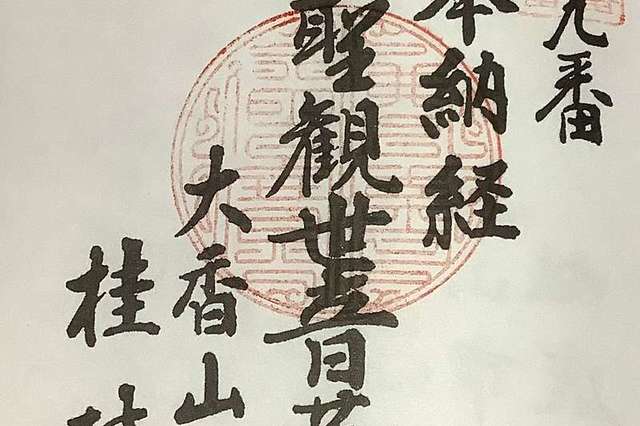 九番
奉納経
聖観世音
大香山
桂